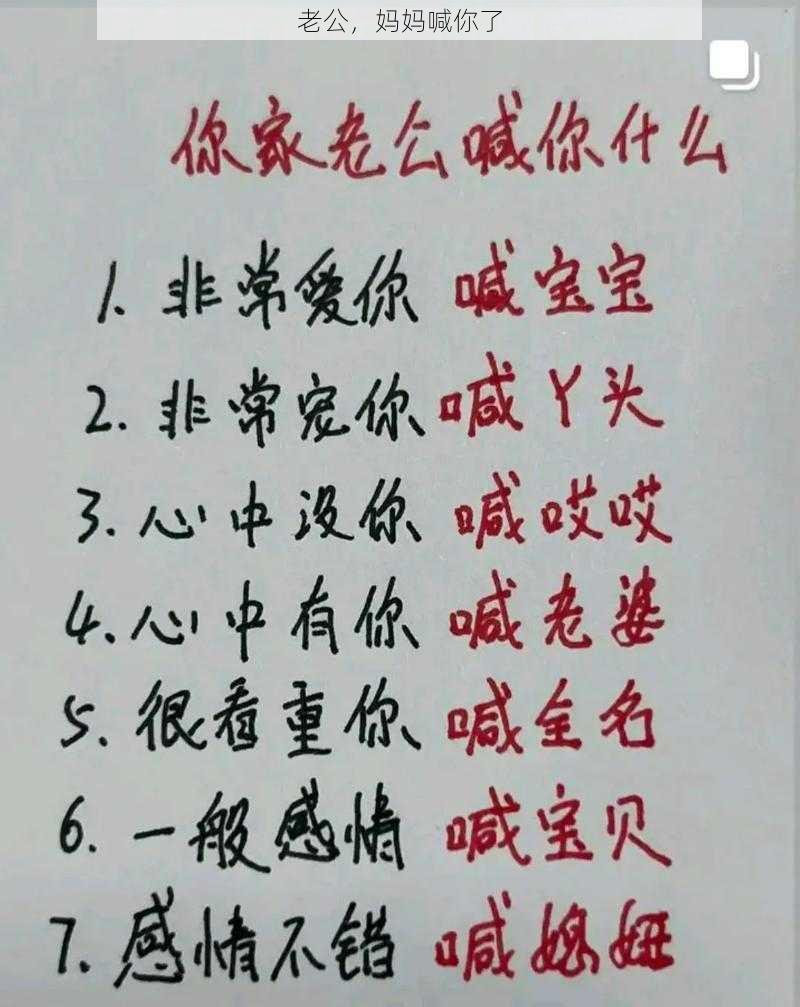 老公，妈妈喊你了
你家老公喊你什么
1. 非常爱你 喊宝宝
2. 非常宠你 喊丫头
3. 心中没你 喊哎哎
4. 心中有你 喊老婆
5. 很看重你 喊全名
6. 一般感情 喊宝贝
7. 感情不错 喊媳妞